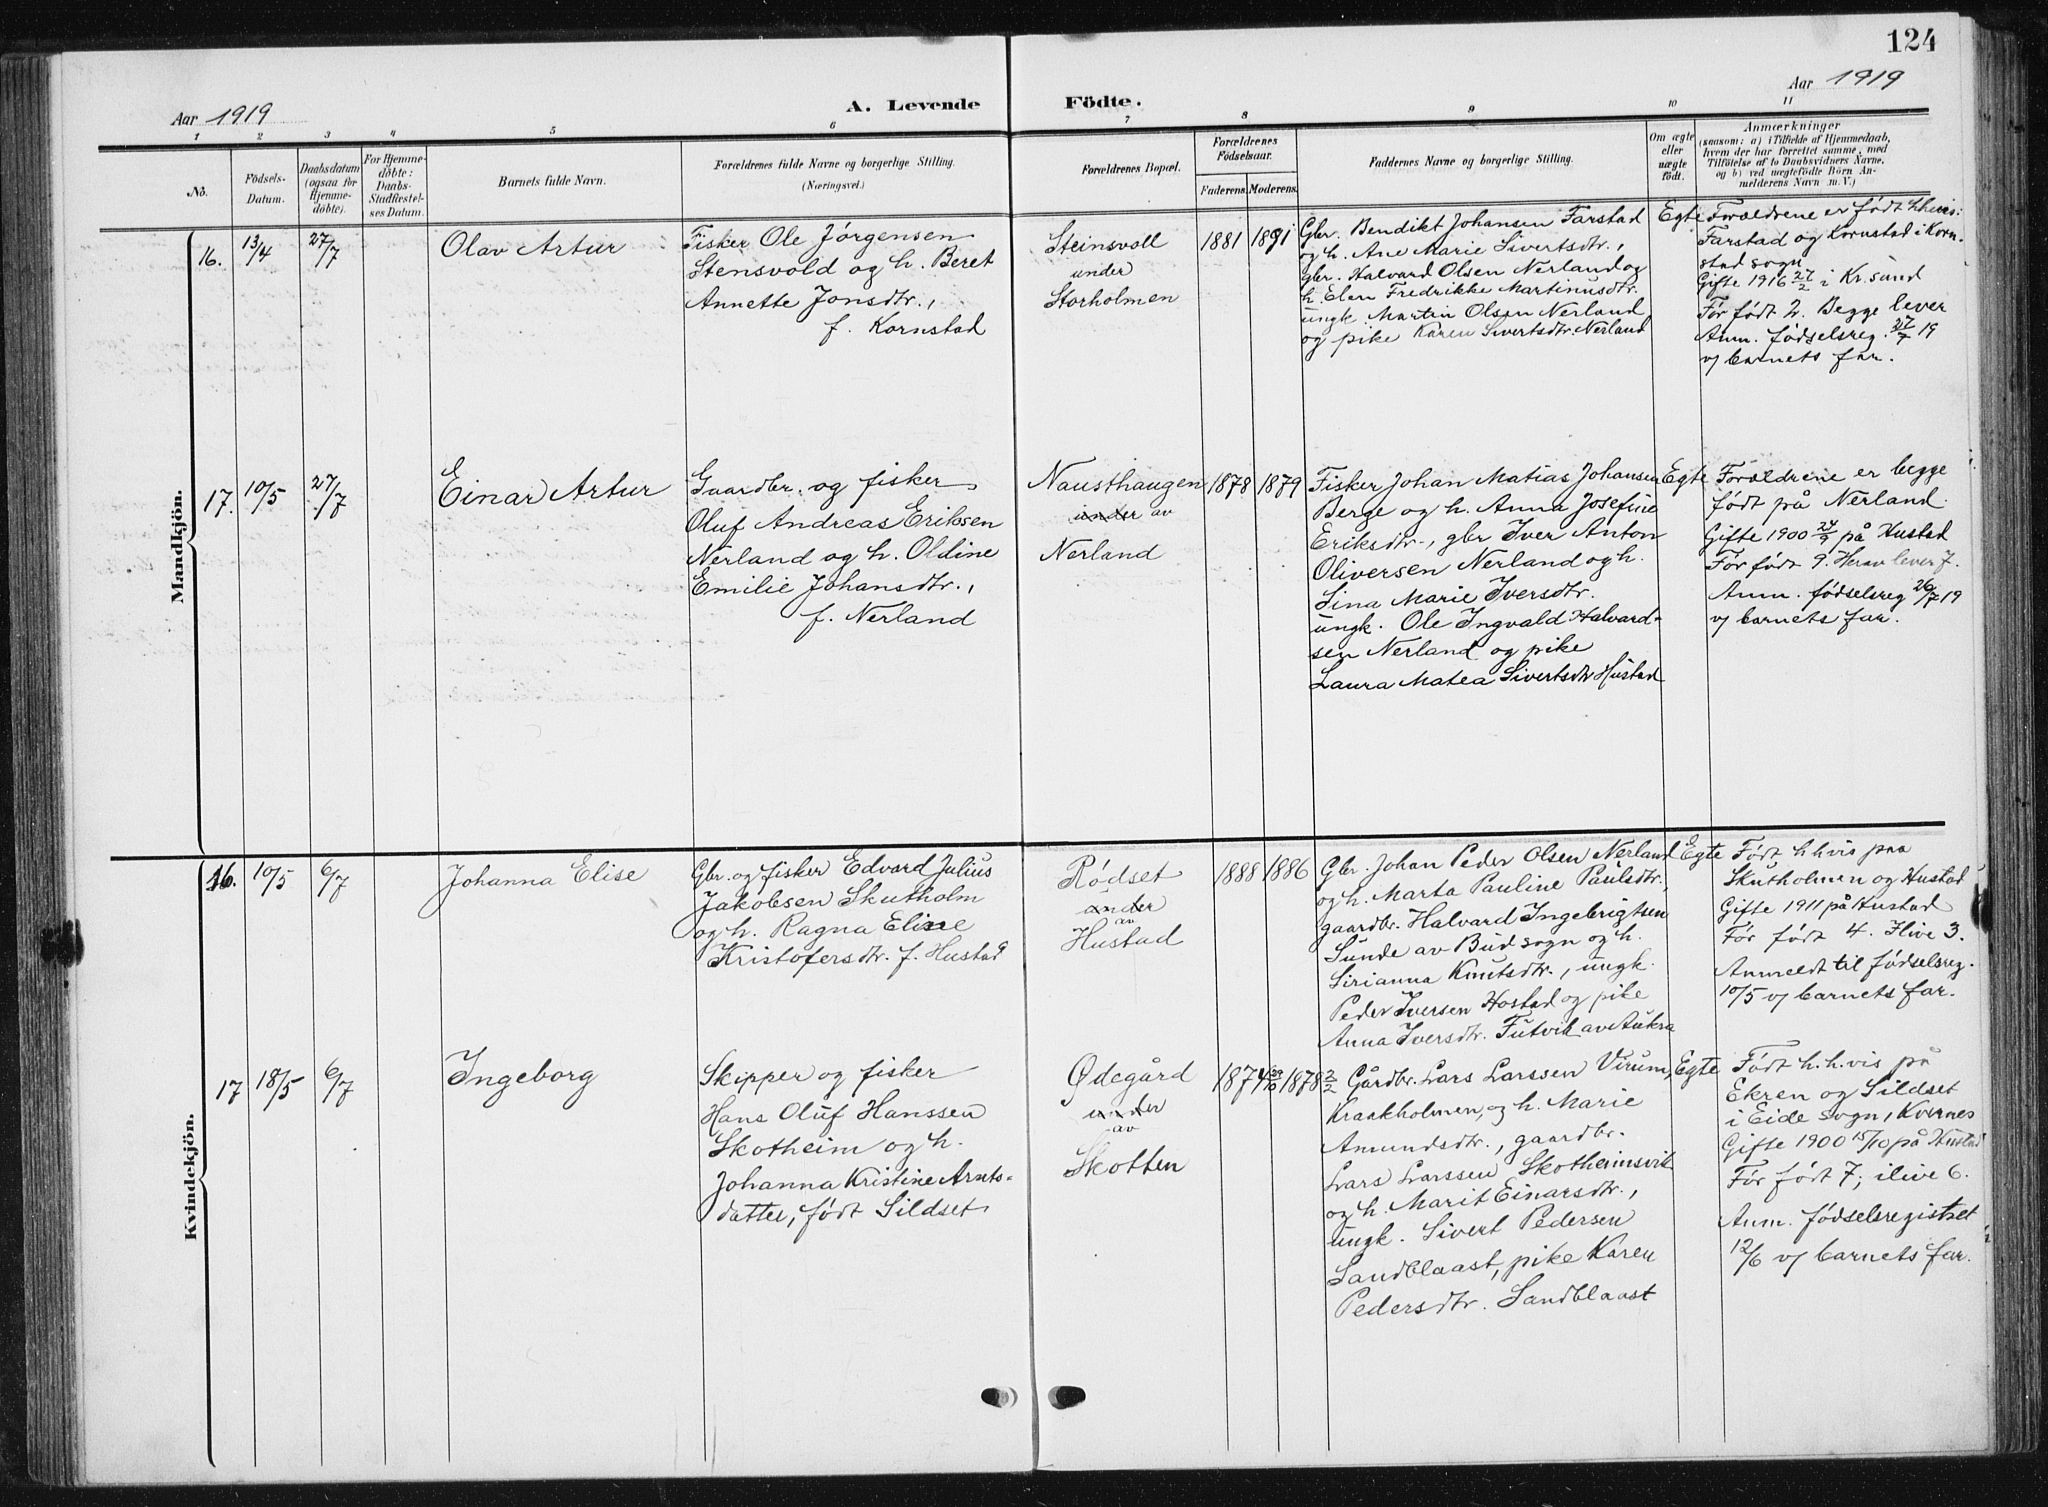 124
Aar 1919
A. Levende
Födte.
Aar 1919
1 2 3 4 5 6 7 8 9 10 11
No.
Födsels-
Datum.
Daabsdatum
(ogsaa for
Hjemme-
döbte).
For Hjemme-
döbte:
Daabs-
Stadfæstel-
ses Datum.
Barnets fulde Navn.
Forældrenes fulde Navne og borgerlige Stilling.
(Næringsvei.)
Forældrenes Bopæl.
Forældrenes
Födselsaar.
Faderens. Moderens.
Faddernes Navne og borgerlige Stilling.
Om ægte
eller
uægte
födt.
Anmærkninger
(saasom: a) i Tilfælde af Hjemmedaab,
hvem der har forrettet samme, med
Tilföielse af to Daabsvidners Navne,
og b) ved uægtefödte Börn An-
melderens Navn m. V.)
Mandkjön.
16.
13/4
27/7
Olav Artur
Fisker Ole Jørgensen
Stensvold og h. Beret
Annette Jonsdtr.,
f. Kornstad
Steinsvoll
under
Storholmen
1881
1891
Gbr. Bendikt Johansen Farstad
og h. Ane Marie Sivertsdtr.,
gbr. Halvard Olsen Nerland og
h. Elen Fredrikke Martinusdtr.
ungk. Martin Olsen Nerland
og pike Karen Sivertsdtr. Nerland
Egte
Forældrene er født h.hvis:
Farstad og Kornstad i Korn-
stad sogn
Gifte 1916 27/2 i Kr.sund
Før født 2. Begge lever
Anm. fødselsreg. 27/7 19
v/ barnets far.
17.
10/5
27/7
Einar Artur
Gaardbr. og fisker
Oluf Andreas Eriksen
Nerland og h. Oldine
Emilie Johansdtr.,
f. Nerland
Nausthaugen
under av
Nerland
1878
1879
Fisker Johan Matias Johansen
Berge og h. Anna Josefine
Eriksdtr., gbr Iver Anton
Oliversen Nerland og h.
Lina Marie Iversdtr.
ungk. Ole Ingvald Halvard-
sen Nerland og pike
Laura Matea Sivertsdtr Hustad
Egte
Forældrene er begge
født på Nerland.
Gifte 1900 24/9 på Hustad
Før født 9. Herav lever 7.
Anm. fødselsreg 26/7 19
v/ barnets far.
Kvindekjön.
16.
10/5
6/7
Johanna Elise
Gbr. og fisker Edvard Julius
Jakobsen Skutholm
og h. Ragna Eline
Kristofersdtr. f. Hustad
Rødset
under
av
Hustad
1888
1886
Gbr. Johan Peder Olsen Nerland
og h. Marta Pauline Paulsdtr.,
gaardbr. Halvard Ingebrigtsen
Sunde av Bud sogn og h.
Sirianna Knutsdtr., ungk.
Peder Iversen Hostad og pike
Anna Iversdtr. Futvik av Aukra
Egte
Født h.hvis paa
Skutholmen og Hustad
Gifte 1911 på Hustad
Før født 4. Ilive 3.
Anmeldt til fødselsreg.
10/5 v/ barnets far.
17
18/5
6/7
Ingeborg
Skipper og fisker
Hans Oluf Hanssen
Skotheim og h.
Johanna Kristine Arnts-
datter, født Sildset
Ødegård
under
av
Skotten
1874
1878 2/2
Gårdbr. Lars Larssen Virum,
Kraakholmen, og h. Marie
Amundsdtr., gaardbr.
Lars Larssen Skotheimsvik
og h. Marit Einarsdtr.,
ungk. Sivert Pedersen
Sandblaast, pike Karen
Pedersdtr. Sandblaast
Egte
Født h.h.vis på
Ekren og Sildset
i Eide sogn, Kvernes
Gifte 1900 15/10 på Hustad
Før født 7, ilive 6.
Anm. fødselsregistret
12/6 v/ barnets far.